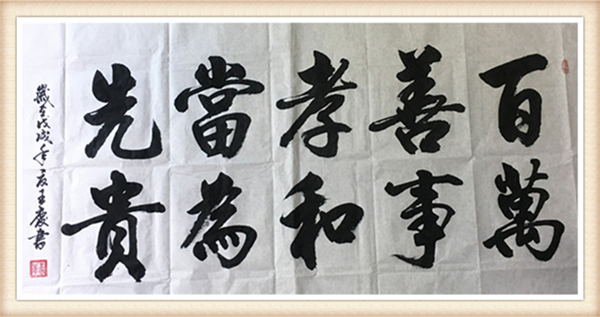 百萬
善事
孝和
當為
先貴
歲戊戌年夏王慶書